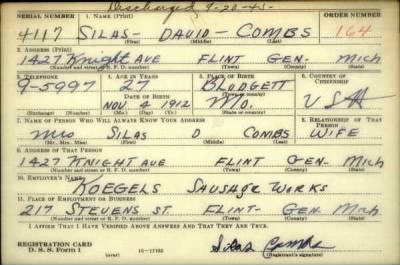 Discharged 9-20-45-
SERIAL NUMBER 1. NAME (Print) ORDER NUMBER
4117 SILAS- DAVID- COMBS 164
(First) (Middle) (Last)
2. ADDRESS (Print)
1427 Knight AVE FLINT GEN. Mich
(Number and street or R. F. D. number) (Town) (County) (State)
3. TELEPHONE 4. AGE IN YEARS 5. PLACE OF BIRTH 6. COUNTRY OF CITIZENSHIP
9-5997 27 BLODGETT
DATE OF BIRTH (Town or county)
NOV 4 1912 MO. USA
(Exchange) (Number) (Mo.) (Day) (Yr.) (State or country)
7. NAME OF PERSON WHO WILL ALWAYS KNOW YOUR ADDRESS 8. RELATIONSHIP OF THAT PERSON
MRS SILAS D COMBS WIFE
(Mr., Mrs., Miss) (First) (Middle) (Last)
9. ADDRESS OF THAT PERSON
1427 KNIGHT AVE FLINT GEN. Mich
(Number and street or R. F. D. number) (Town) (County) (State)
10. EMPLOYER'S NAME
KOEGELS SAUSAGE WORKS
11. PLACE OF EMPLOYMENT OR BUSINESS
217 STEVENS ST. FLINT- GEN Mich
(Number and street or R. F. D. number) (Town) (County) (State)
I AFFIRM THAT I HAVE VERIFIED ABOVE ANSWERS AND THAT THEY ARE TRUE.
REGISTRATION CARD
D. S. S. Form 1 (over) 16-17105 Silas Combs
(Registrant's signature)